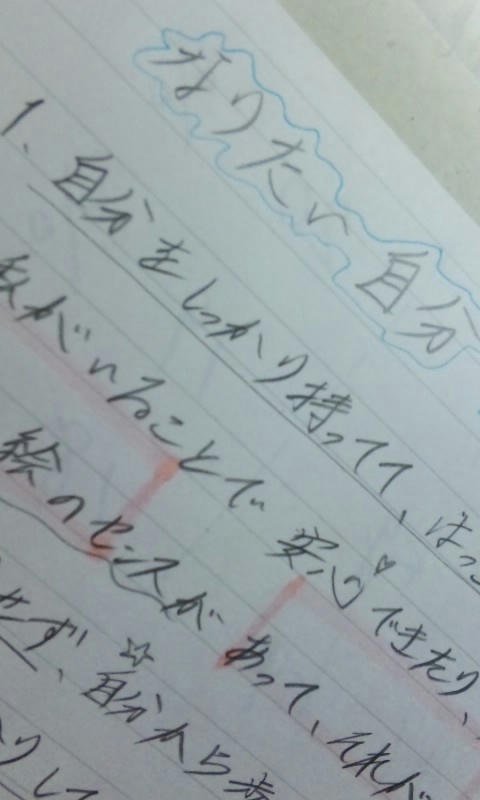 なりたい自分
1、自分をしっかり持ってて、はっ
がいることで安心できたり、
絵のセンスがあって、それが
せず、自分から歩
りして